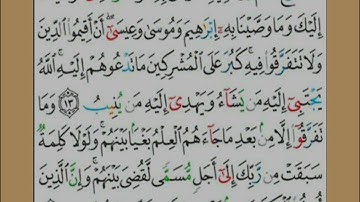 إِلَيْكَ وَمَا وَصَّيْنَا بِهِۦٓ إِبْرَٰهِيمَ وَمُوسَىٰ وَعِيسَىٰٓ ۖ أَنْ أَقِيمُوا۟ ٱلدِّينَ
وَلَا تَتَفَرَّقُوا۟ فِيهِ ۚ كَبُرَ عَلَى ٱلْمُشْرِكِينَ مَا تَدْعُوهُمْ إِلَيْهِ ۚ ٱللَّهُ
يَجْتَبِىٓ إِلَيْهِ مَن يَشَآءُ وَيَهْدِىٓ إِلَيْهِ مَن يُنِيبُ ﴿١٣﴾ وَمَا
تَفَرَّقُوٓا۟ إِلَّا مِنۢ بَعْدِ مَا جَآءَهُمُ ٱلْعِلْمُ بَغْيًۢا بَيْنَهُمْ ۚ وَلَوْلَا كَلِمَةٌ
سَبَقَتْ مِن رَّبِّكَ إِلَىٰٓ أَجَلٍ مُّسَمًّى لَّقُضِىَ بَيْنَهُمْ ۚ وَإِنَّ ٱلَّذِينَ